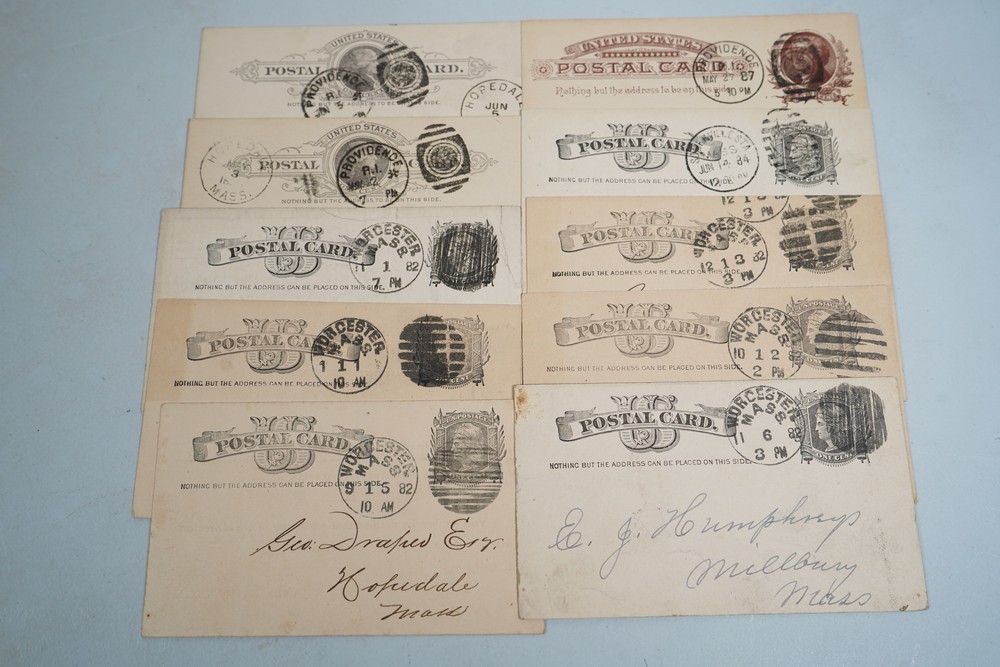 UNITED STATES
POSTAL CARD.
NOTHING BUT THE ADDRESS TO BE ON THIS SIDE.
PROVIDENCE
R.I.
HOPEDALE
JUN
5
UNITED STATES
POSTAL CARD.
Nothing but the address to be on this side.
PROVIDENCE
R.I.
MAY 27 87
5 30 PM
UNITED STATES
POSTAL
NOTHING BUT THE ADDRESS TO BE ON THIS SIDE.
MASS.
PROVIDENCE
R.I.
PM
US
POSTAL CARD.
JUN 14 84
US
POSTAL CARD.
NOTHING BUT THE ADDRESS CAN BE PLACED ON THIS SIDE.
WORCESTER
MASS.
11 1 82
7 PM
12 13
3 PM
US
POSTAL CARD.
NOTHING BUT THE ADDRESS CAN BE PLACED ON THIS SIDE.
WORCESTER
MASS.
12 13 82
3 PM
US
POSTAL CARD.
NOTHING BUT THE ADDRESS CAN BE PLACED ON THIS SIDE.
WORCESTER
MASS.
1 11
10 AM
ONE CENT
US
POSTAL CARD.
NOTHING BUT THE ADDRESS CAN BE PLACED ON THIS SIDE.
WORCESTER
MASS.
10 12 82
2 PM
ONE CENT
US
POSTAL CARD.
NOTHING BUT THE ADDRESS CAN BE PLACED ON THIS SIDE.
WORCESTER
MASS.
9 15 82
10 AM
U.S. POSTAGE
ONE CENT
Geo: Draper Esq.
Hopedale
Mass
US
POSTAL CARD.
NOTHING BUT THE ADDRESS CAN BE PLACED ON THIS SIDE.
WORCESTER
MASS.
11 6 82
3 PM
ONE CENT
E. J. Humphreys
Millbury
Mass